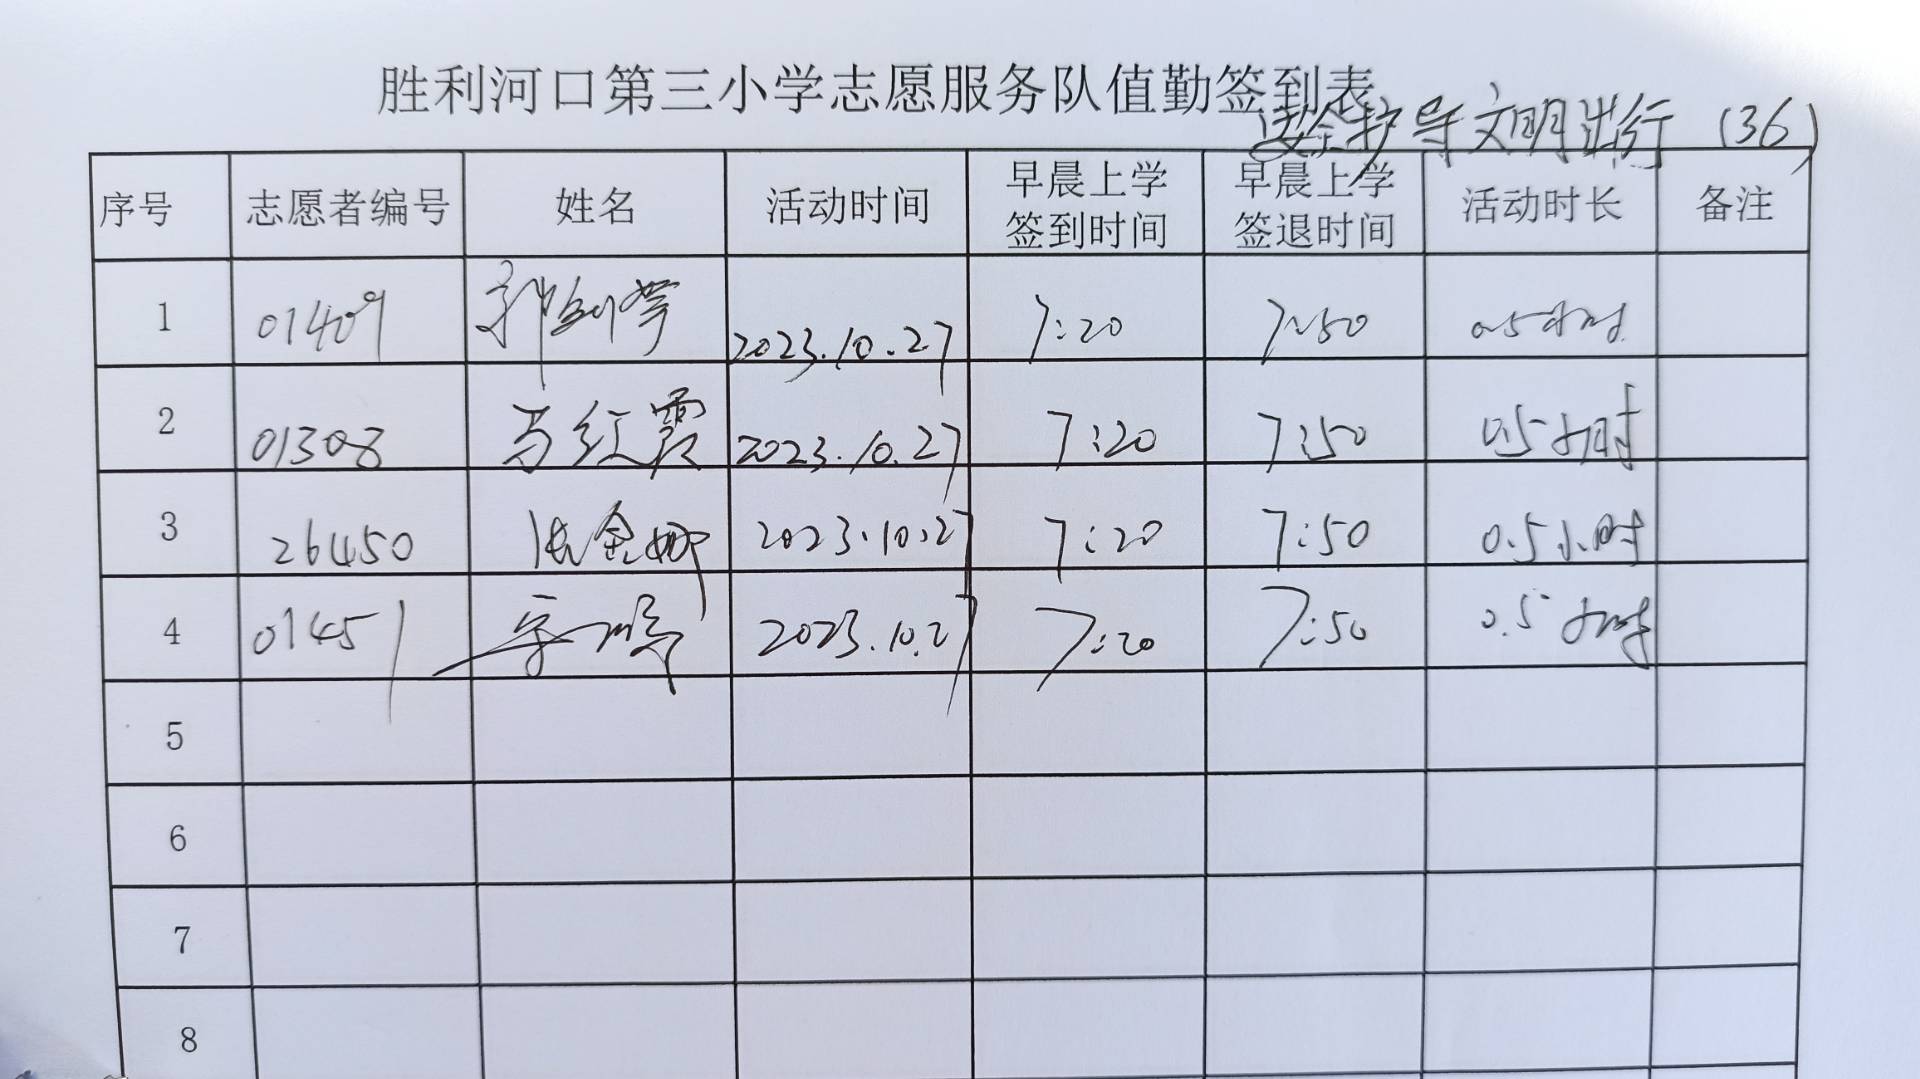 胜利河口第三小学志愿服务队值勤签到表
安全护导文明出行（36）
序号 志愿者编号 姓名 活动时间 早晨上学签到时间 早晨上学签退时间 活动时长 备注
1 01409 2023.10.27 7:20 7:50 0.5小时
2 01308 马红霞 2023.10.27 7:20 7:50 0.5小时
3 26450 张金娜 2023.10.27 7:20 7:50 0.5小时
4 01451 2023.10.27 7:20 7:50 0.5小时
5
6
7
8